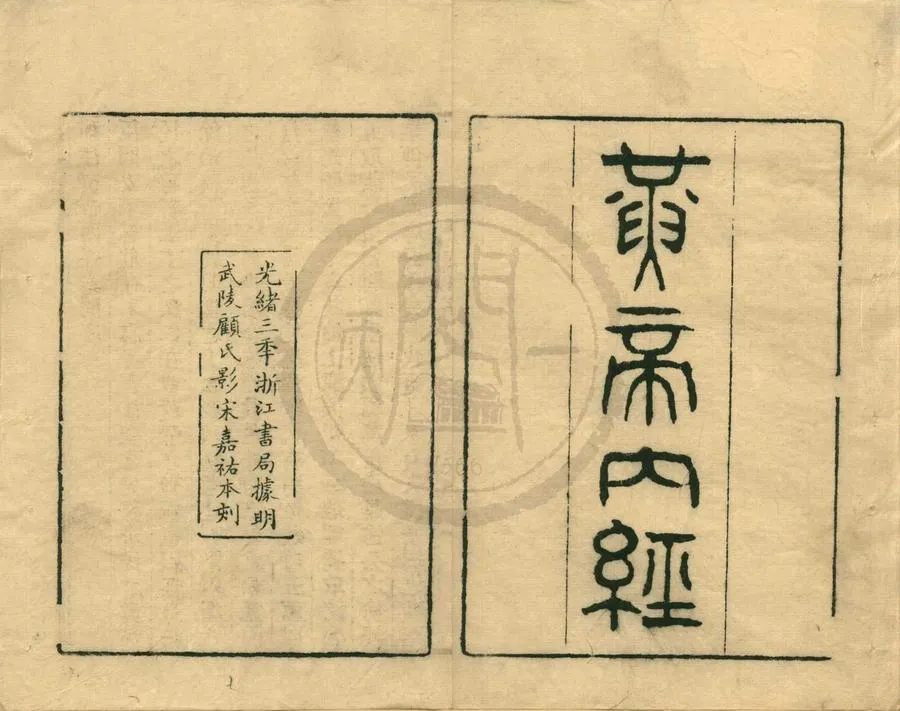 黃帝内經
光緒三秊浙江書局據明
武陵顧氏影宋嘉祐本刻